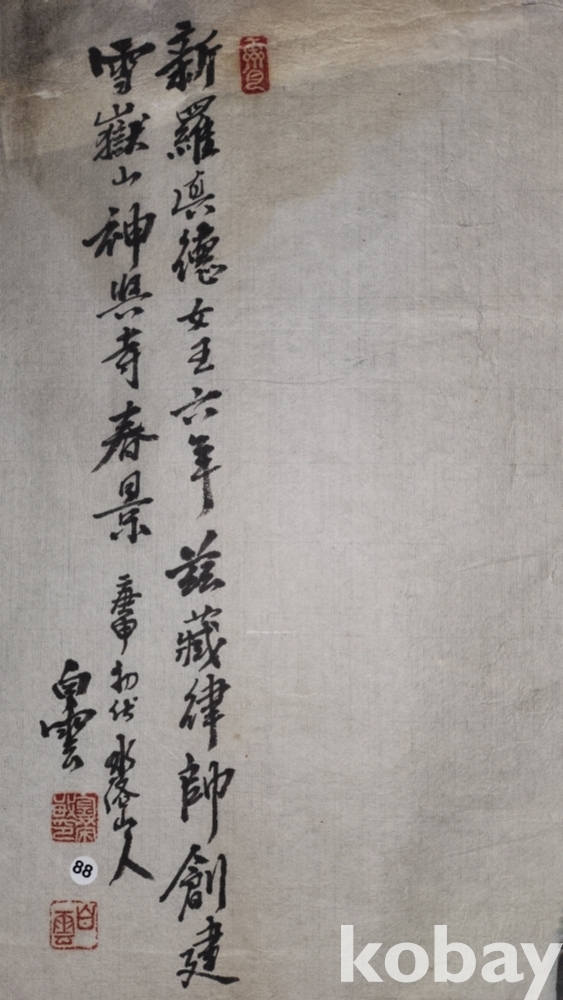 新羅眞德女王六年慈藏律師創建
雪嶽山神興寺春景
庚申初伏 山人
白雲
白雲
88
kobay